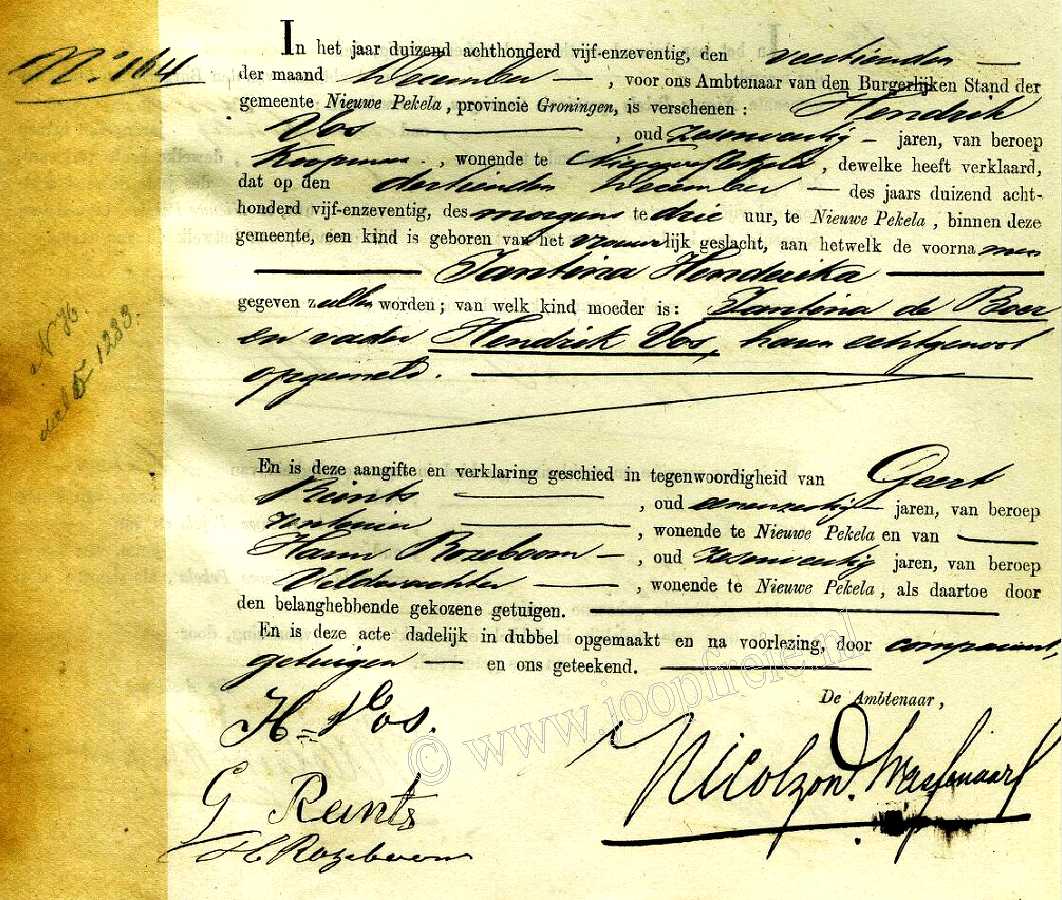 Nº 164
In het jaar duizend achthonderd vijf-enzeventig, den veertienden
der maand December, voor ons Ambtenaar van den Burgerlijken Stand der
gemeente Nieuwe Pekela, provincie Groningen, is verschenen: Hendrik
Vos, oud zesenveertig jaren, van beroep
Koopman, wonende te Nieuwe Pekela, dewelke heeft verklaard,
dat op den dertienden December des jaars duizend acht-
honderd vijf-enzeventig, des morgens te drie uur, te Nieuwe Pekela, binnen deze
gemeente, een kind is geboren van het vrouwelijk geslacht, aan hetwelk de voornamen
Jantina Henderika
gegeven zullen worden; van welk kind moeder is: Jantina de Boer
en vader Hendrik Vos, haren echtgenoot
opgemeld.
N H.
deel 5 1233.
En is deze aangifte en verklaring geschied in tegenwoordigheid van Geert
Reints, oud eenenzestig jaren, van beroep
, wonende te Nieuwe Pekela en van
Harm Rozeboom, oud zesenveertig jaren, van beroep
Veldwachter, wonende te Nieuwe Pekela, als daartoe door
den belanghebbende gekozene getuigen.
En is deze acte dadelijk in dubbel opgemaakt en na voorlezing, door comparant,
getuigen en ons geteekend.
De Ambtenaar,
H. Vos.
G Reints
H Rozeboom
© www.joopfrele.nl